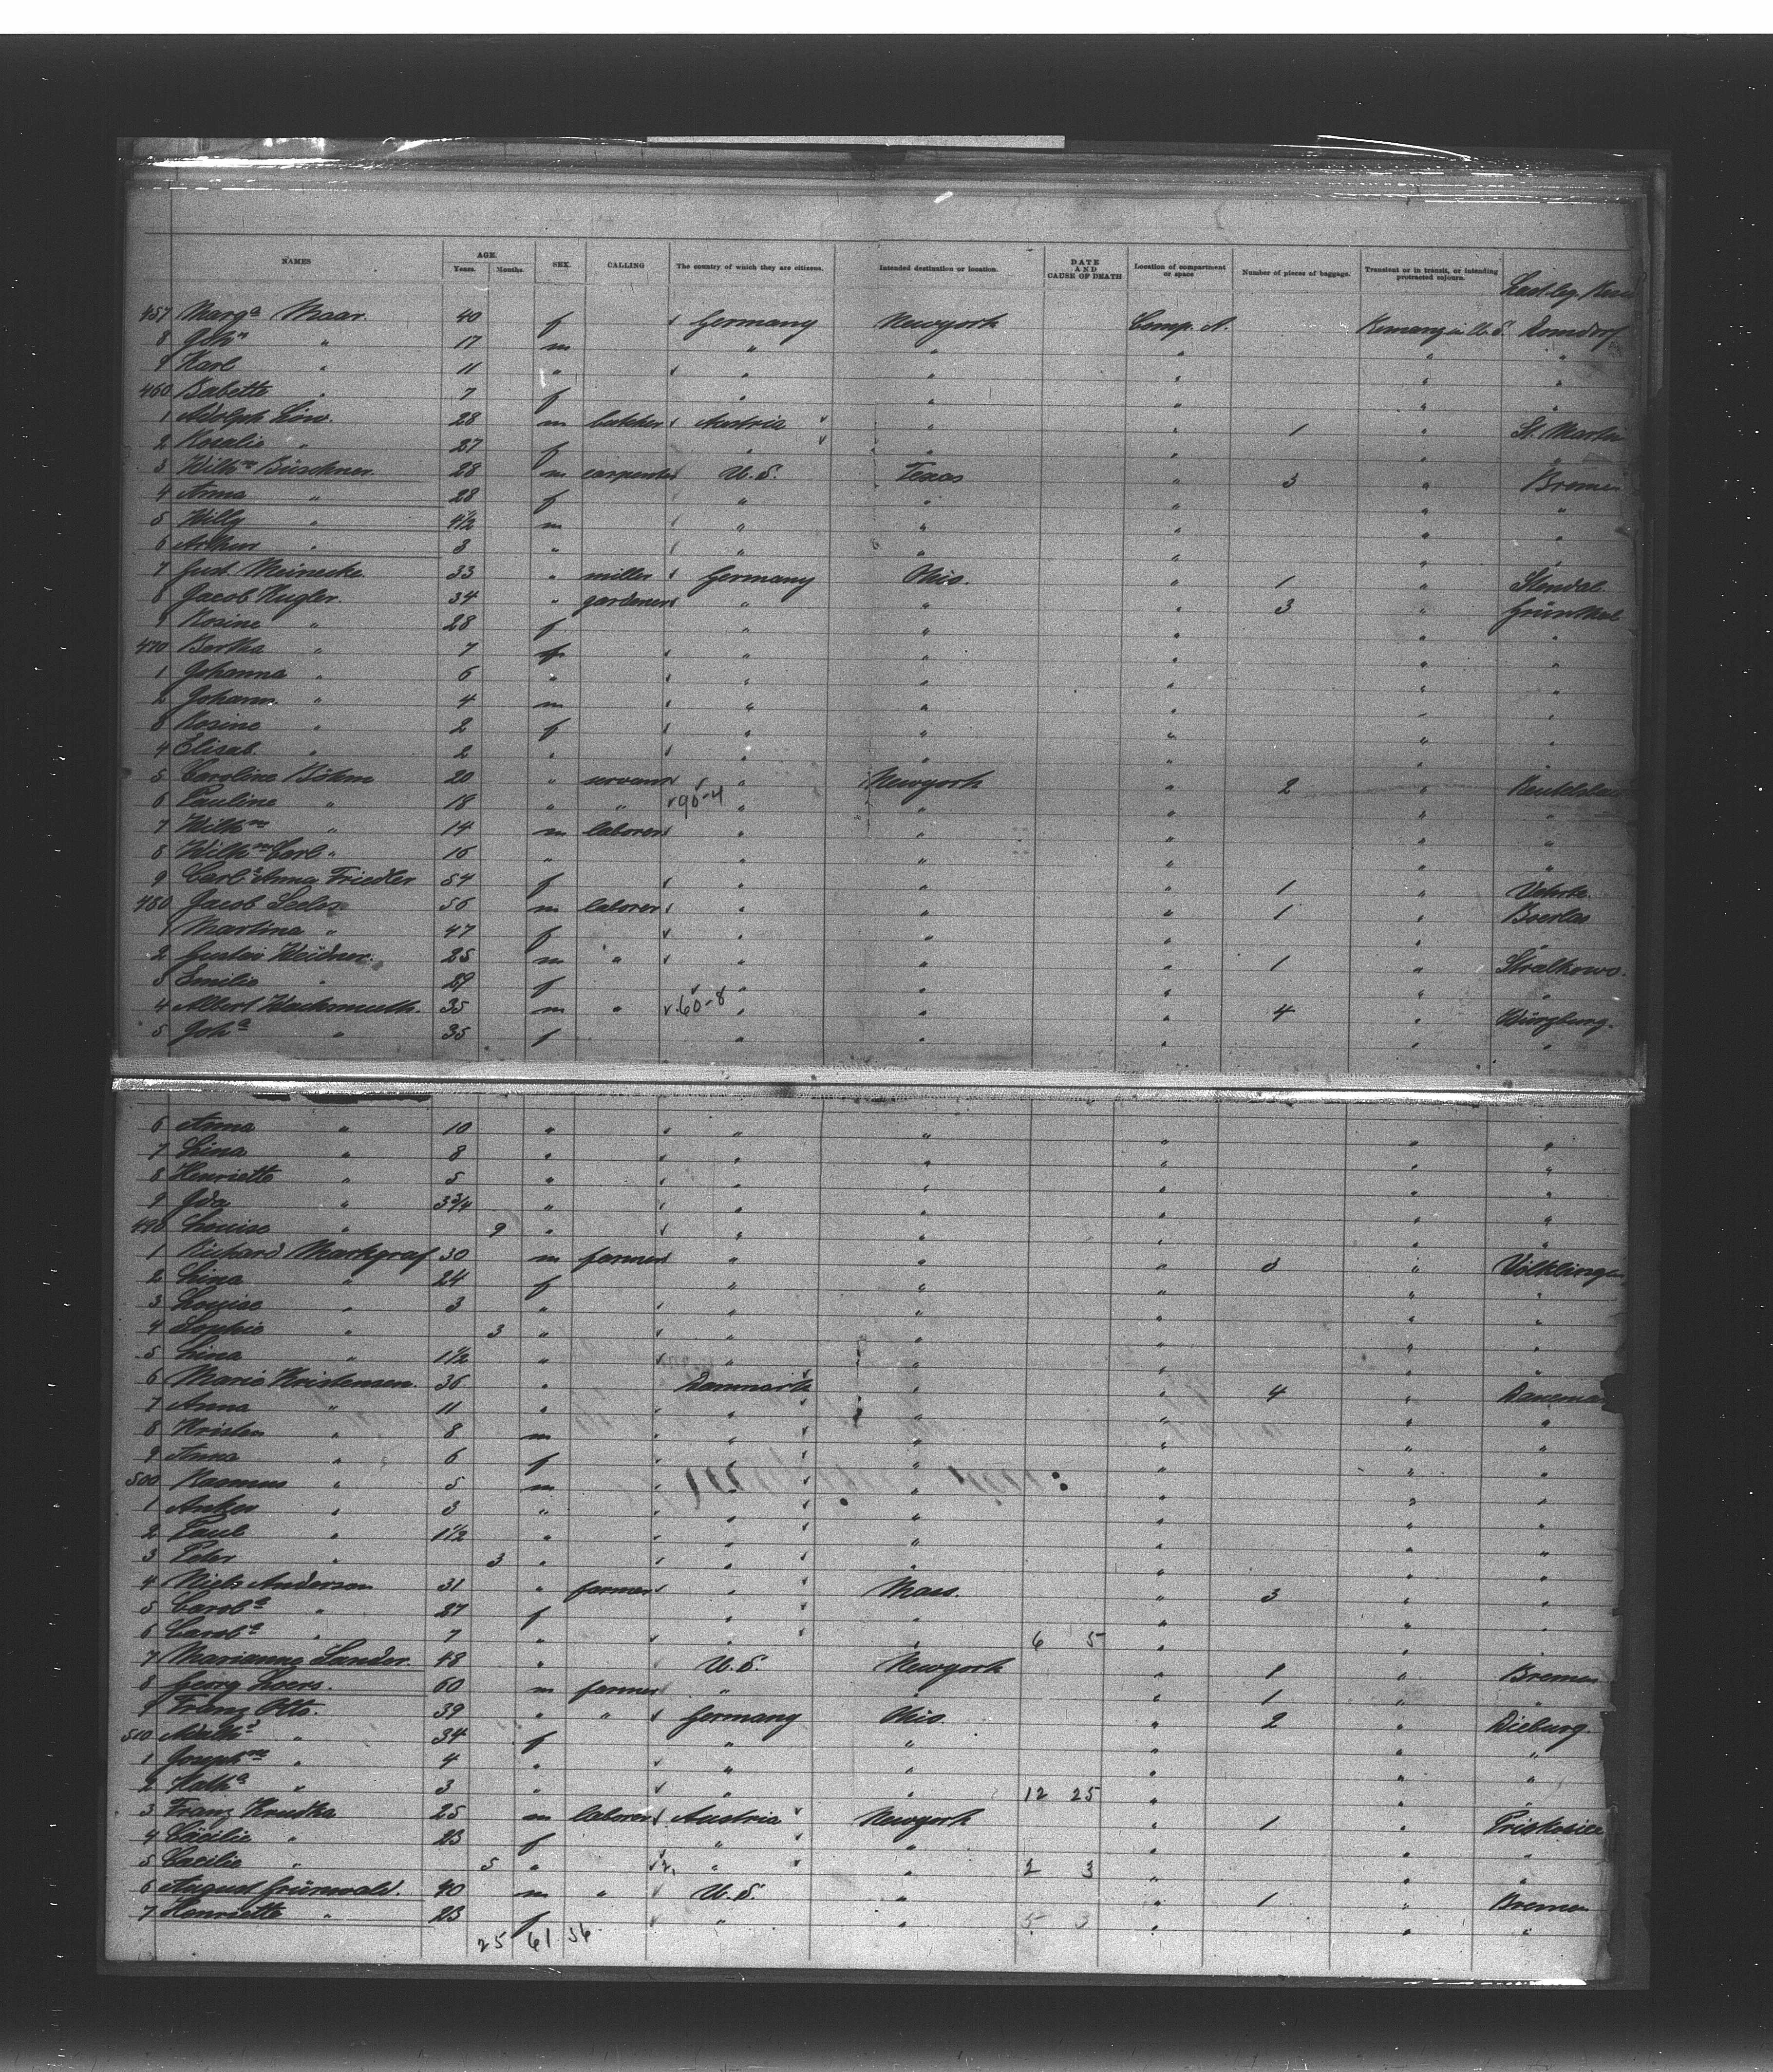 NAMES AGE. Years. Months. SEX. CALLING The country of which they are citizens. Intended destination or location. DATE AND CAUSE OF DEATH Location of compartment or space Number of pieces of baggage. Transient or in transit, or intending protracted sojourn.
457 Marg.a Maar. 40 f Germany Newyork Comp. A.
8 Joh.n " 17 m " " " " "
9 Karl " 11 " " " " " "
460 Babette " 7 f " " " " "
1 Adolph Löw. 28 m butcher Austria " " 1 " St. Martin
2 Rosalie " 27 f " " " " "
3 Wilh.m Büschner. 28 m carpenter U.S. Texas " 3 " Bremen
4 Anna " 28 f " " " " "
5 Willy " 4 1/2 m " " " " "
6 Arthur " 3 " " " " " "
7 Gust Meinecke. 33 " miller Germany Ohio. " 1 " Stendal
8 Jacob Kugler. 34 " gardener " " " 3 " Grünthal
9 Rosine " 28 f " " " " "
470 Bertha " 7 f " " " " "
1 Johanna " 6 " " " " " "
2 Johann. " 4 m " " " " "
3 Rosine " 2 f " " " " "
4 Elisab. " 2 " " " " " "
5 Caroline Böhm 20 " servant " Newyork " 2 "
6 Pauline " 18 " " 90-4 " " " " "
7 Wilh.m " 14 m laborer " " " " "
8 Wilh.m Carl " 16 " " " " " "
9 Anna Friedler 54 f " " " 1 "
480 Jacob Seeler. 56 m laborer " " " 1 "
1 Martina " 47 f " " " " "
2 Gustav Weidner. 25 m " " " " 1 " Stralkowo.
3 Emilie " 29 f " " " " "
4 Albert Wachsmuth. 35 m " 60-8 " " " 4 " Würzburg.
5 Joh.a " 35 f " " " " "
6 Anna " 10 " " " " " "
7 Lina " 8 " " " " " "
8 Henriette " 5 " " " " " "
9 Ida " 3 3/4 " " " " " "
490 Louise " 9 " " " " " "
1 Richard Markgraf 30 m farmer " " " 3 " Völklingen
2 Lina " 24 f " " " " "
3 Louise " 3 " " " " " "
4 Sophie " 3 " " " " " "
5 Lina " 1 1/2 " " " " " "
6 Marie Kristensen. 36 " Danmark " " 4 "
7 Anna " 11 " " " " " "
8 Kristen " 8 m " " " " "
9 Anna " 6 f " " " " "
500 Rasmus " 5 m " " " " "
1 Anker " 3 " " " " " "
2 Paul " 1 1/2 " " " " " "
3 Peter " 3 " " " " " "
4 Niels Anderson 31 " farmer " Mass. " 3 " "
5 Carol.a " 27 f " " " " "
6 Carol.a " 7 " " " 6 5 " " "
7 Marianne Sander. 48 " U.S. Newyork " 1 " Bremen
8 Georg Loers. 60 m farmer " " " 1 " "
9 Franz Otto. 39 " " Germany Ohio. " 2 " Dieburg.
510 " 34 f " " " " "
1 Joseph.ne " 4 " " " " " "
2 Kath.a " 3 " " " 12 25 " " "
3 Franz Hrudka 25 m laborer Austria Newyork " 1 "
4 Cäcilie " 23 f " " " " "
5 Cacilie " 5 " " " 2 3 " " "
6 August Grünwald. 40 m " U.S. " " 1 " Bremen
7 Henriette " 23 f " " 5 3 " " "
25 61 36